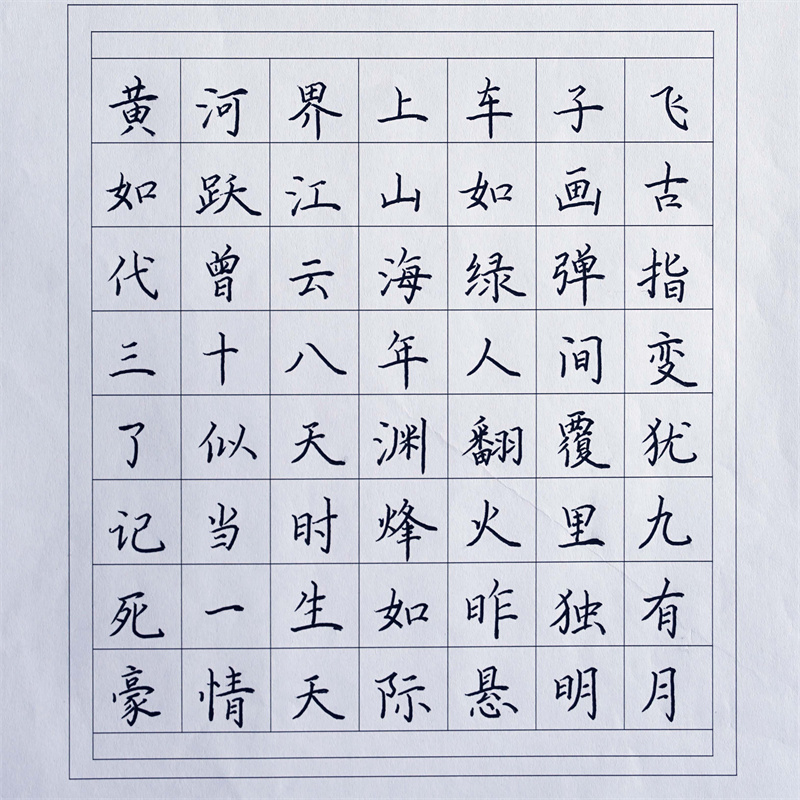 黄河界上车子飞
如跃江山如画古
代曾云海绿弹指
三十八年人间变
了似天渊翻覆犹
记当时烽火里九
死一生如昨独有
豪情天际悬明月